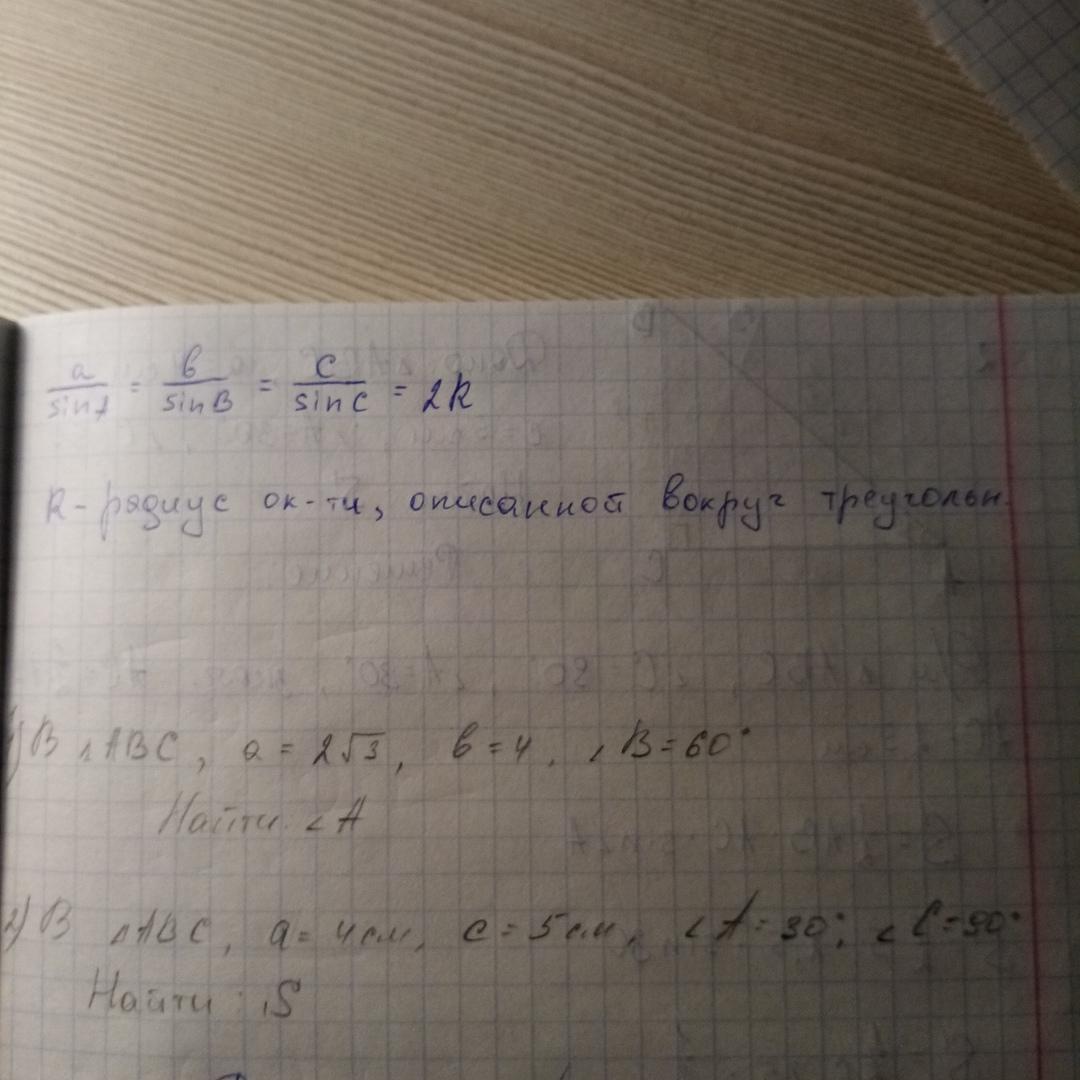 a/sinA = в/sinB = c/sinC = 2R
R - радиус ок-ти, описанной вокруг треугольн.
1) В △ABC, a = 2√3, в = 4, ∠B = 60°
Найти ∠A
2) В △ABC, a = 4см, c = 5см, ∠A = 30°; ∠C = 90°
Найти: S